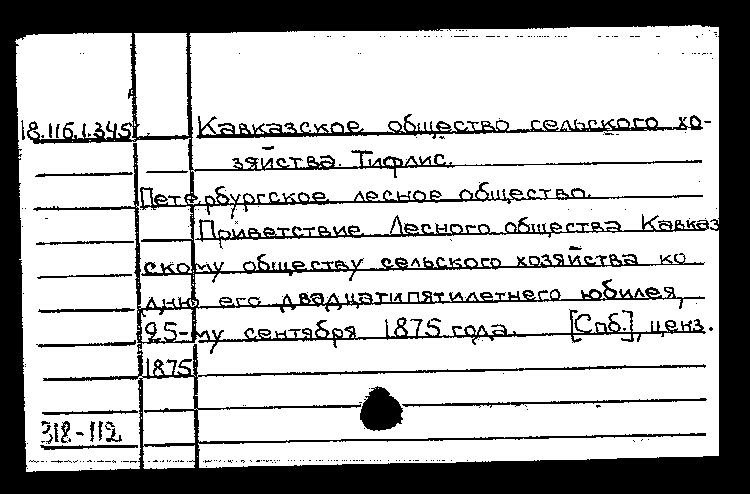 18.116.1.345 Кавказское общество сельского хо-
зяйства. Тифлис.
Петербургское лесное общество.
Приветствие Лесного общества Кавказ
скому обществу сельского хозяйства ко
дню его двадцатипятилетнего юбилея,
25-му сентября 1875 года. [Спб.], ценз.
1875
318-112